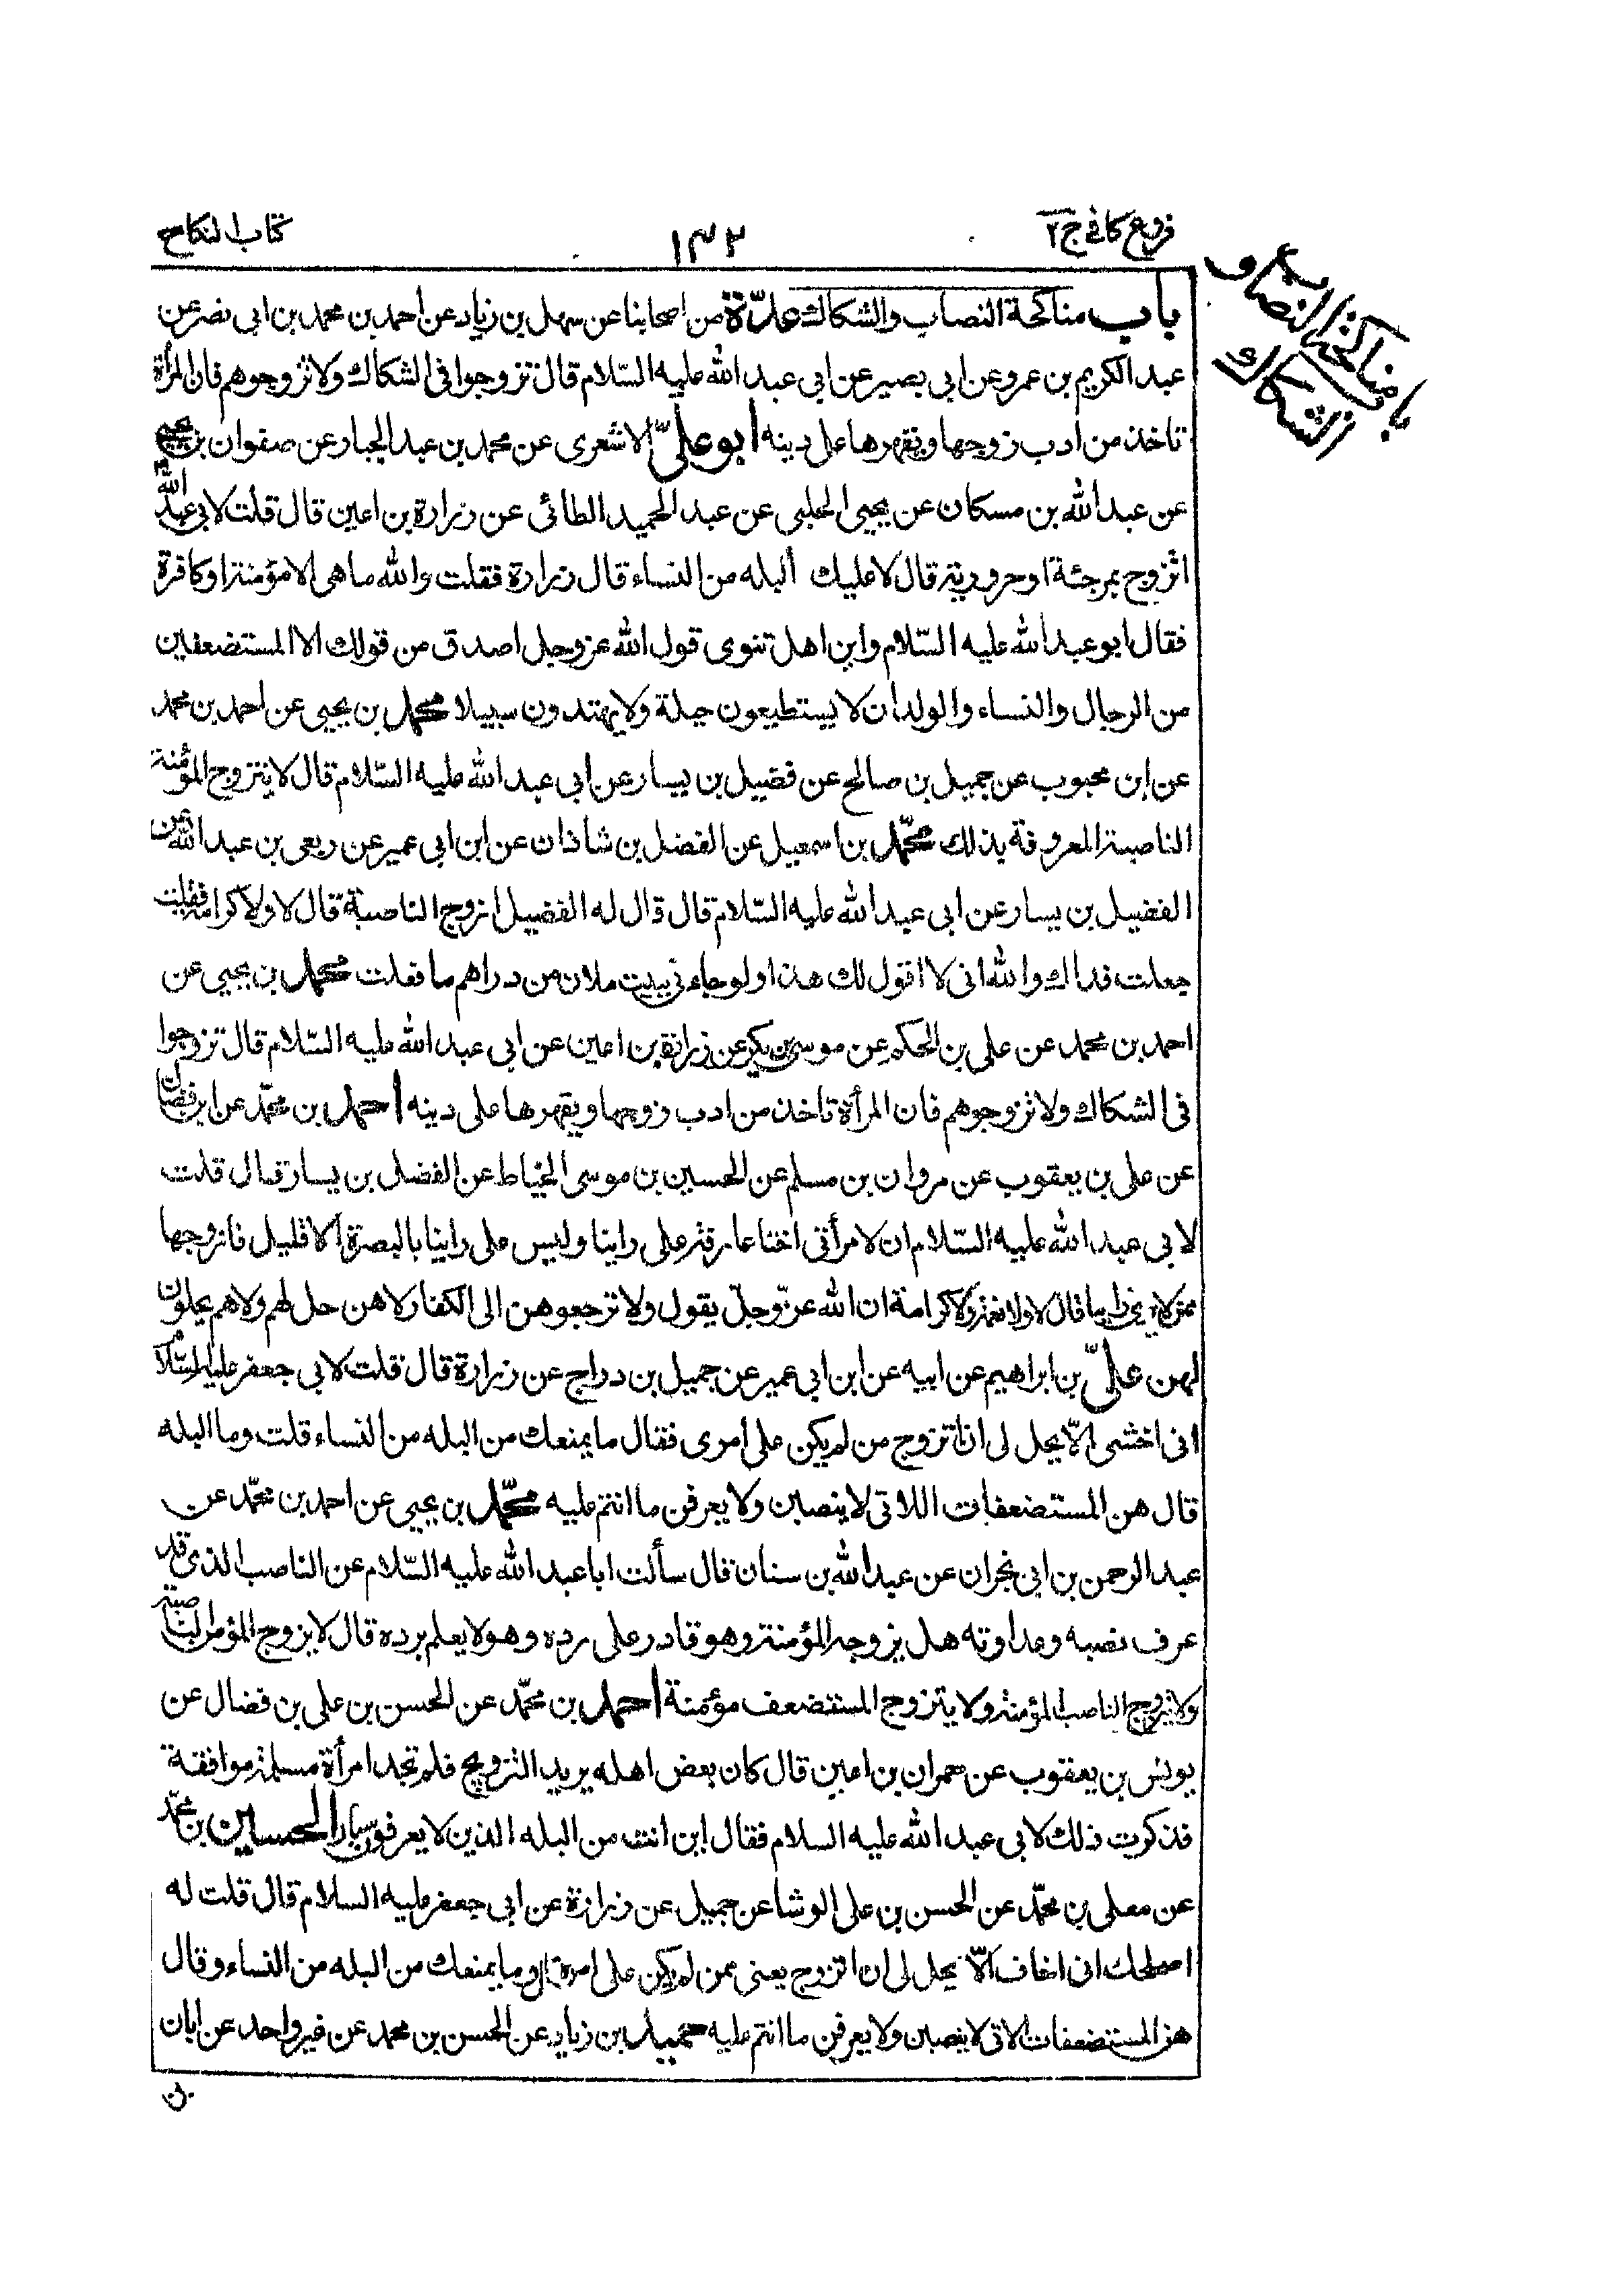 فروع كافى ج٢
١٣٢
كتاب النكاح
باب مناكحة النصاب والشكاك
باب مناكحة النصاب والشكاك عدّة من اصحابنا عن سهل بن زياد عن احمد بن محمد بن ابى نصر عن
عبد الكريم بن عمرو عن ابى بصير عن ابى عبد الله عليه السّلام قال تزوجوا فى الشكاك ولا تزوجوهم فان المرأة
تاخذ من ادب زوجها ويقهرها على دينه ابو علىّ الاشعرى عن محمد بن عبد الجبار عن صفوان بن يحيى
عن عبد الله بن مسكان عن يحيى الحلبى عن عبد الحميد الطائى عن زرارة بن اعين قال قلت لابى عبد الله
اتزوج بمرجئة او حرورية قال لا عليك البله من النساء قال زرارة فقلت والله ما هى الا مؤمنة او كافرة
فقال ابو عبد الله عليه السّلام واين اهل تنوى قول الله عز وجل اصدق من قولك الا المستضعفين
من الرجال والنساء والولدان لا يستطيعون حيلة ولا يهتدون سبيلا محمد بن يحيى عن احمد بن محمد
عن ابن محبوب عن جميل بن صالح عن فضيل بن يسار عن ابى عبد الله عليه السّلام قال لا يتزوج المؤمنة
الناصبة المعروفة بذلك محمّد بن اسمعيل عن الفضل بن شاذان عن ابن ابى عمير عن ربعى بن عبد الله عن
الفضيل بن يسار عن ابى عبد الله عليه السّلام قال قال له الفضيل اتزوج الناصبة قال لا ولا كرامة فقلت
جعلت فداك والله انى لا اقول لك هذا ولو جاءنى ببيت ملان من دراهم ما فعلت محمد بن يحيى عن
احمد بن محمد عن على بن الحكم عن موسى بن بكر عن زرارة بن اعين عن ابى عبد الله عليه السّلام قال تزوجوا
فى الشكاك ولا تزوجوهم فان المرأة تاخذ من ادب زوجها ويقهرها على دينه احمد بن محمّد عن ابن فضال
عن على بن يعقوب عن مروان بن مسلم عن الحسين بن موسى الخياط عن الفضل بن يسار قال قلت
لابى عبد الله عليه السّلام ان لامرأتى اختا عارفة على راينا وليس على راينا بالبصرة الا قليل فازوجها
ممن لا يرى رايها قال لا ولا نعمة ولا كرامة ان الله عزّ وجلّ يقول ولا ترجعوهن الى الكفار لا هن حل لهم ولا هم يحلون
لهن علىّ بن ابراهيم عن ابيه عن ابن ابى عمير عن جميل بن دراج عن زرارة قال قلت لابى جعفر عليه السّلام
انى اخشى الّا يحل لى ان اتزوج من لم يكن على امرى فقال ما يمنعك من البله من النساء قلت وما البله
قال هن المستضعفات اللاتى لا ينصبن ولا يعرفن ما انتم عليه محمّد بن يحيى عن احمد بن محمّد عن
عبد الرحمن بن ابى نجران عن عبد الله بن سنان قال سألت ابا عبد الله عليه السّلام عن الناصب الذى قد
عرف نصبه وعداوته هل يزوجه المؤمنة وهو قادر على رده وهو لا يعلم برده قال لا يزوج المؤمن الناصبة
ولا يتزوج الناصب المؤمنة ولا يتزوج المستضعف مؤمنة احمد بن محمّد عن الحسن بن على بن فضال عن
يونس بن يعقوب عن حمران بن اعين قال كان بعض اهله يريد التزويج فلم تجد امرأة مسلمة موافقة
فذكرت ذلك لابى عبد الله عليه السلام فقال اين انت من البله الذين لا يعرفون شيئا الحسين بن محمّد
عن معلى بن محمّد عن الحسن بن على الوشا عن جميل عن زرارة عن ابى جعفر عليه السلام قال قلت له
اصلحك انى اخاف الّا يحل لى ان اتزوج يعنى ممن لم يكن على امره قال وما يمنعك من البله من النساء وقال
هن المستضعفات اللاتى لا ينصبن ولا يعرفن ما انتم عليه حميد بن زياد عن الحسن بن محمد عن غير واحد عن ابان
بن